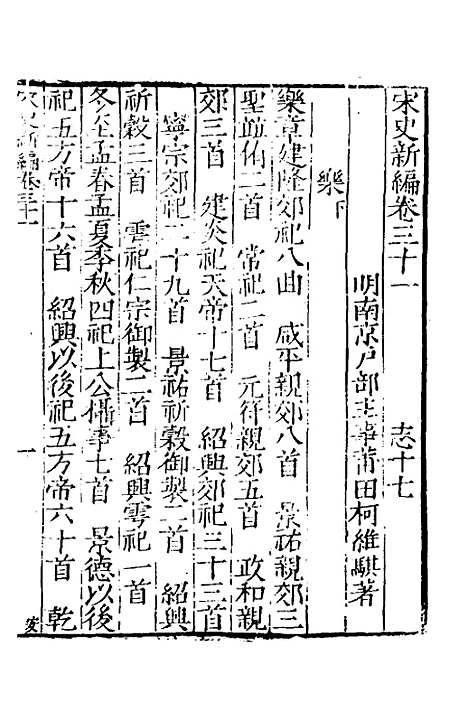 宋史新編卷三十一 志十七
明南京戶部主事莆田柯維騏著
樂下
樂章建隆郊祀八曲 咸平親郊八首 景祐親郊三
聖竝侑二首 常祀二首 元符親郊五首 政和親
郊三首 建炎祀天帝十七首 紹興郊祀三十三首
寧宗郊祀二十九首 景祐祈穀御製二首 紹興
祈穀三首 雩祀仁宗御製二首 紹興雩祀一首
冬至孟春孟夏季秋四祀上公攝事七首 景德以後
祀五方帝十六首 紹興以後祀五方帝六十首 乾
宋史新編卷三十一 一